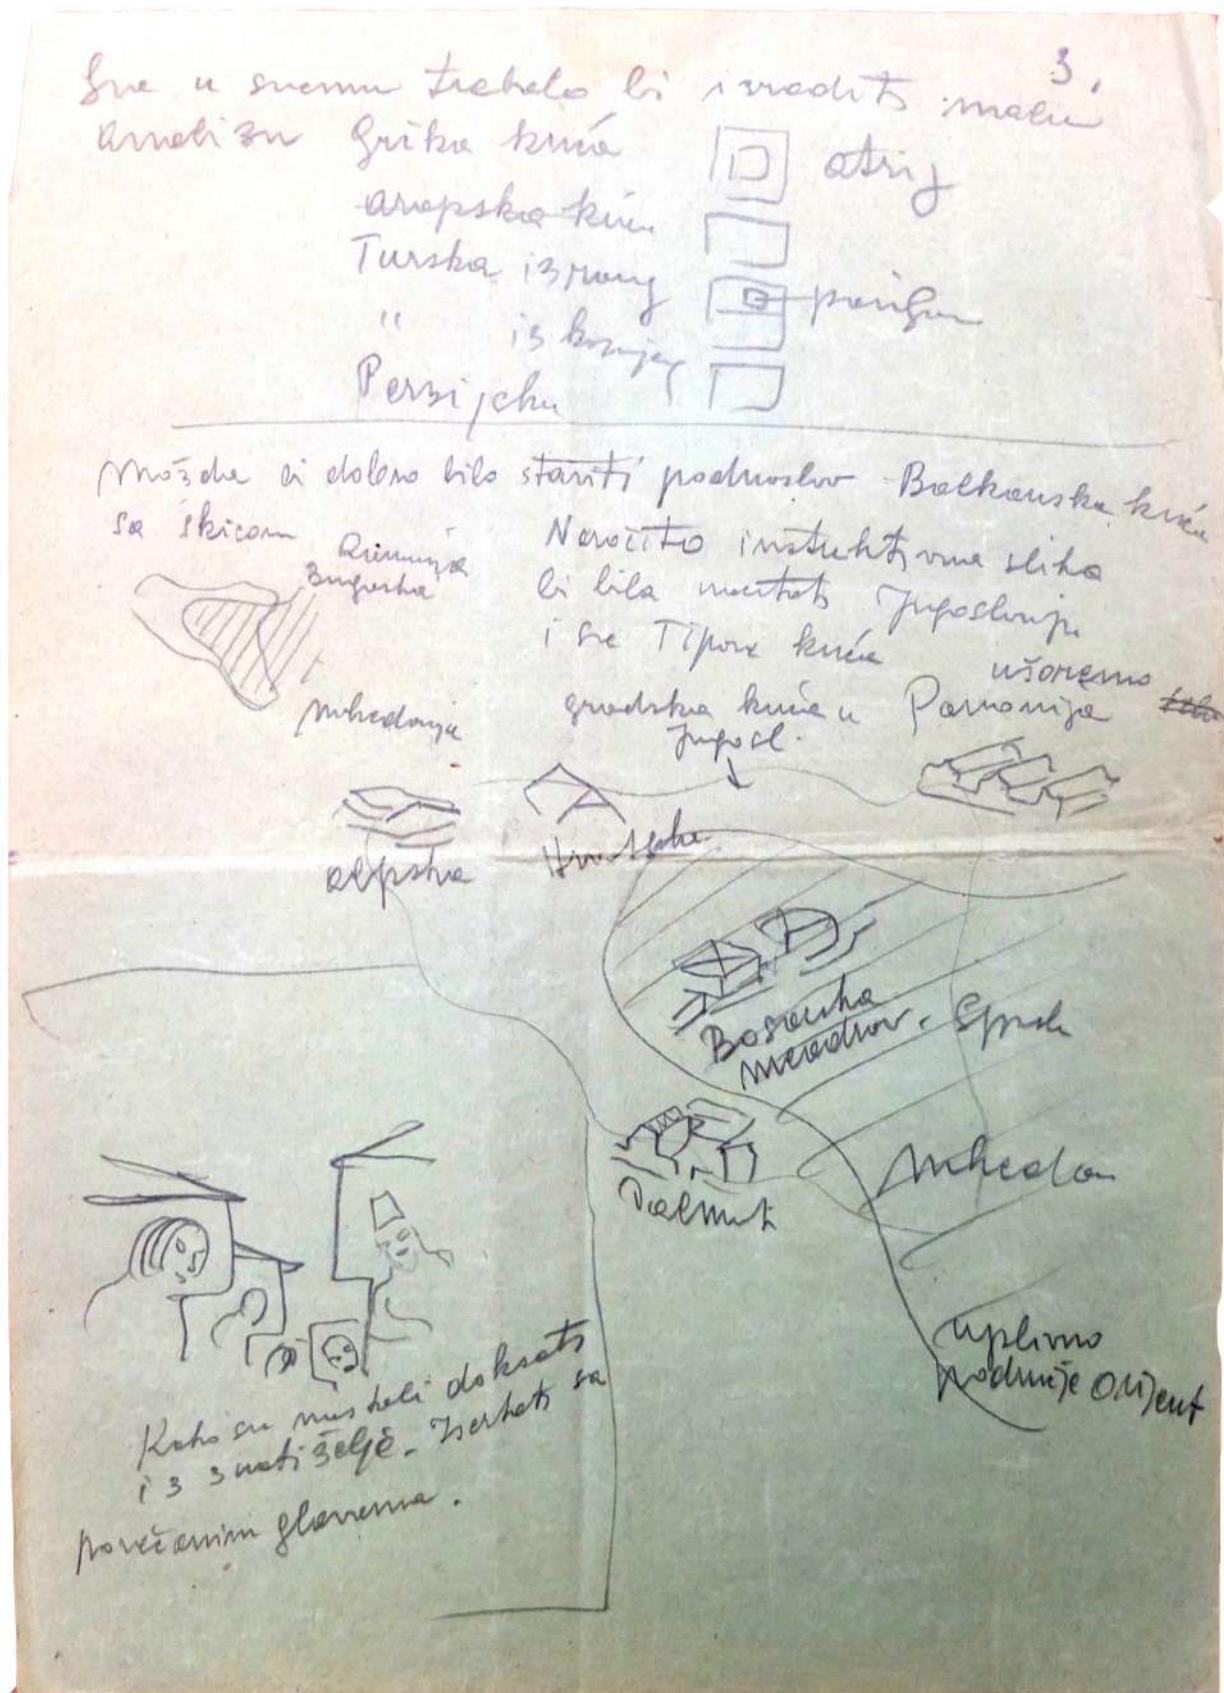 3.
Sve u svemu trebalo bi izradit malu
analizu Grčka kuća atrij
arapska kuća
Turska iz
" iz
Perzijska
Možda bi dobro bilo staviti podnaslov Balkanska kuća
sa skicom
Bugarska
Naročito instruktivna slika
bi bila nacrtati Jugoslaviju
i sve Tipove kuća
ušoreno
Makedonija
gradska kuća u Panonija
Jugosl.
alpska
Hrvatska
Bosanska
Srpska
Makedon
Dalmat
uplivno
područje Orijent
Kako su nastali doksati
iz znatiželje - Icrtati sa
povećanim glavama.